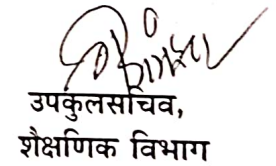 उपकुलसचिव,
शैक्षणिक विभाग